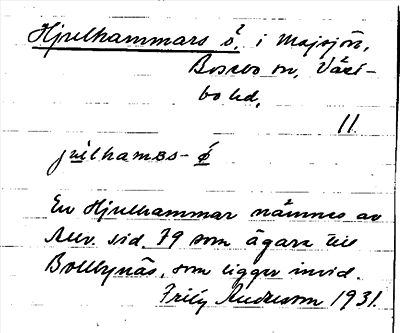 Hjulhammars ö? i Majsjön,
Bosebo sn, Väst-
bo hd,
11.
julhamas-ö
En Hjulhammar nämnes av
Allv. sid. 79 som ägare till
Bollbynäs, som ligger invid.
Frity Andersson 1931.